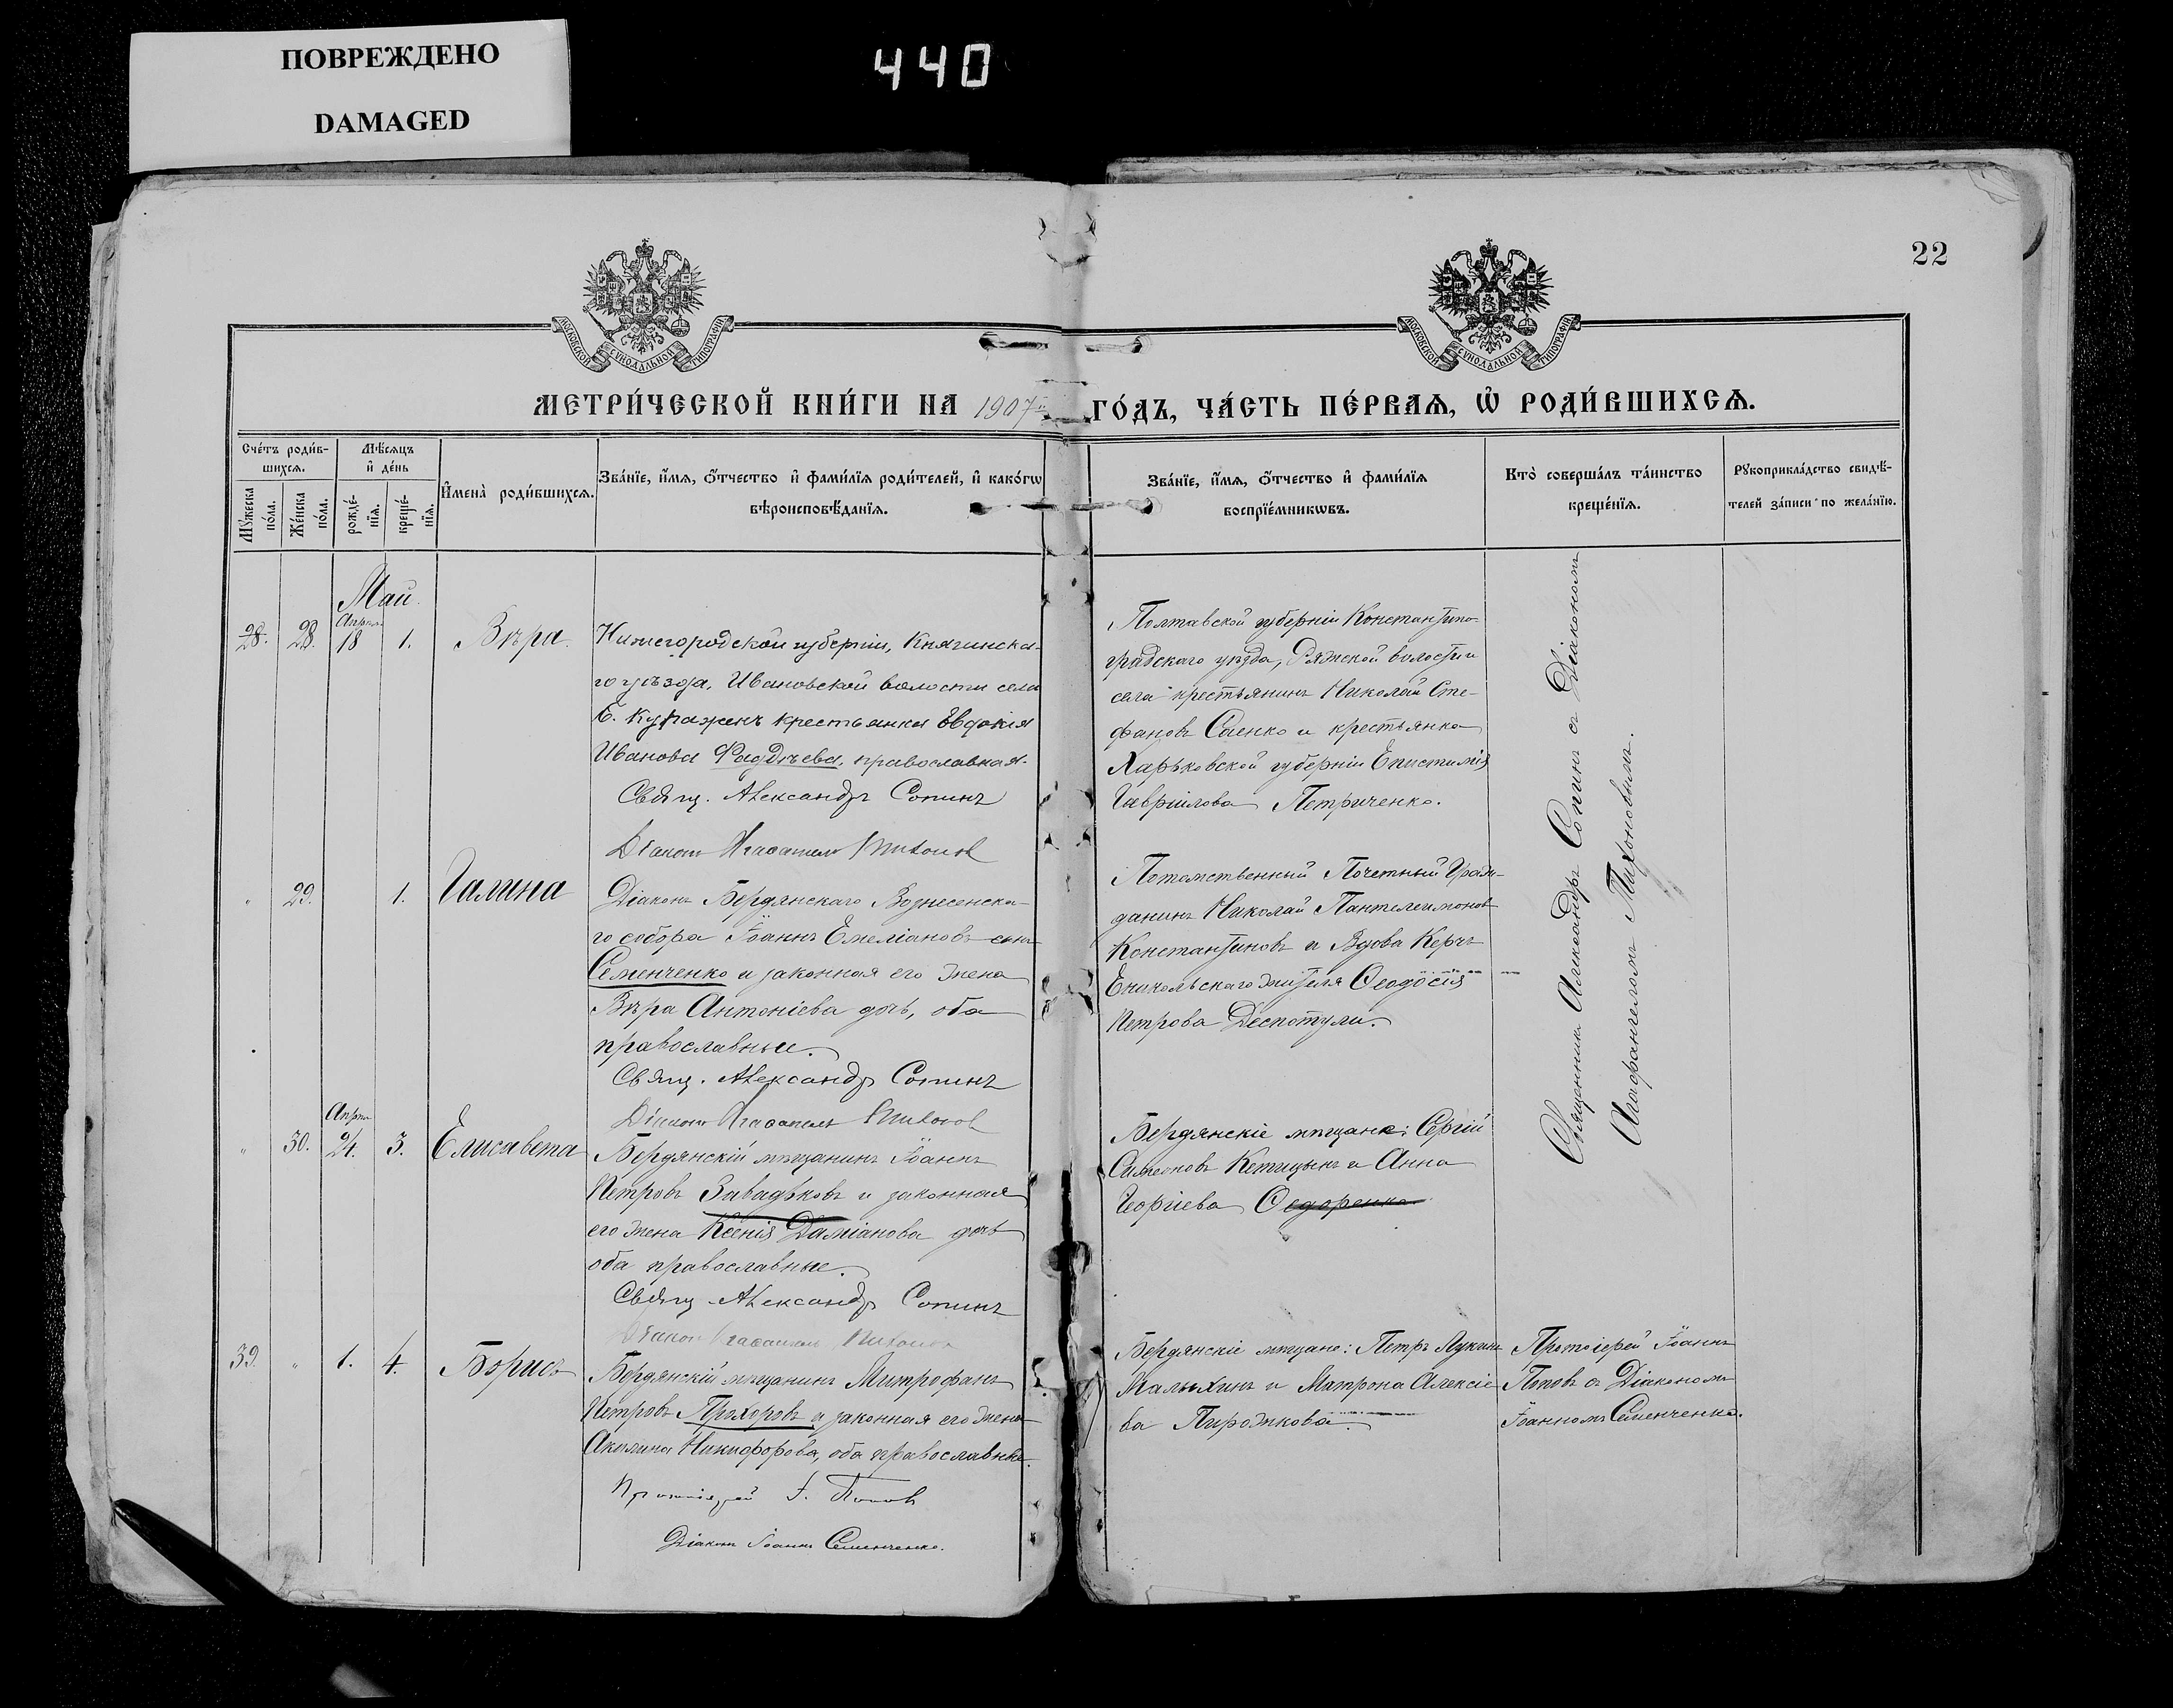 ПОВРЕЖДЕНО
DAMAGED
440
22
МОСКОВСКОЙ СѴНОДАЛЬНОЙ ТИПОГРАФІИ
МОСКОВСКОЙ СѴНОДАЛЬНОЙ ТИПОГРАФІИ
МЕТРИ́ЧЕСКОЙ КНИ́ГИ НА 1907 ГО́ДЪ, ЧА́СТЬ ПЕ́РВАѦ, Ѡ҆ РОДИ́ВШИХСѦ.
Сче́тъ роди́в-
шихсѧ.
Мꙋ́жеска по́ла.
Же́нска по́ла.
Мѣ́сѧцъ
и҆ де́нь
рожде́-
нїѧ.
креще́-
нїѧ.
И҆мена̀ роди́вшихсѧ.
Зва́нїе, и҆́мѧ, ѻ҆́тчество и҆ фами́лїѧ роди́телей, и҆ како́гѡ
вѣроисповѣ́данїѧ.
Зва́нїе, и҆́мѧ, ѻ҆́тчество и҆ фами́лїѧ
воспрїе́мникѡвъ.
Кто̀ соверша́лъ та́инство
креще́нїѧ.
Рꙋкоприкла́дство свидѣ́-
телей за́писи по жела́нїю.
Май.
28. 28. Апрѣля 18 1. Вѣра.
Нижегородской губерніи, Княгинска-
го уѣзда, Ивановской волости села
Б. крестьянка Евдокія
Иванова Фаддѣева, православная.
Свящ. Александръ Сопинъ
Діаконъ
Полтавской губерніи Константино-
градскаго уѣзда, Ряжской волости и
села крестьянинъ Николай Сте-
фановъ Саенко и крестьянка
Харьковской губерніи Епистимія
Гавріилова Петриченко.
Священникъ Александръ Сопинъ съ Діакономъ
Агафангеломъ Тихоновымъ.
" 29. 1. Галина
Діаконъ Бердянскаго Вознесенска-
го собора Іоаннъ Емеліановъ сынъ
Семенченко и законная его жена
Вѣра Антоніева дочь, оба
православные.
Свящ. Александръ Сопинъ
Діаконъ
Потомственный Почетный Граж-
данинъ Николай Пантелеимоновъ
Константиновъ и Вдова Керчь
Еникольскаго жителя Ѳеодосія
Петрова Деспотули.
" 30. Апрѣля 24. 3. Елисавета
Бердянскій мѣщанинъ Іоаннъ
Петровъ Завадьковъ и законная
его жена Ксенія Даміанова дочь
оба православные.
Свящ. Александръ Сопинъ
Діаконъ
Бердянскіе мѣщане: Сергій
Симеоновъ и Анна
Георгіева Ѳедоренко.
39. " 1. 4. Борисъ
Бердянскій мѣщанинъ Митрофанъ
Петровъ Прохоровъ и законная его жена
Акилина Никифорова, оба православные.
Протоіерей І. Поповъ
Діаконъ Іоаннъ Семенченко.
Бердянскіе мѣщане: Петръ Лукинъ
Малыхинъ и Матрона Алексіе-
ва Пирожкова.
Протоіерей Іоаннъ
Поповъ съ Діакономъ
Іоанномъ Семенченко.